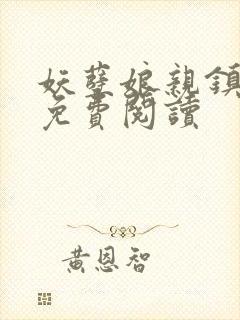 妖孽娘親鎮
免費閱讀
黃恩智